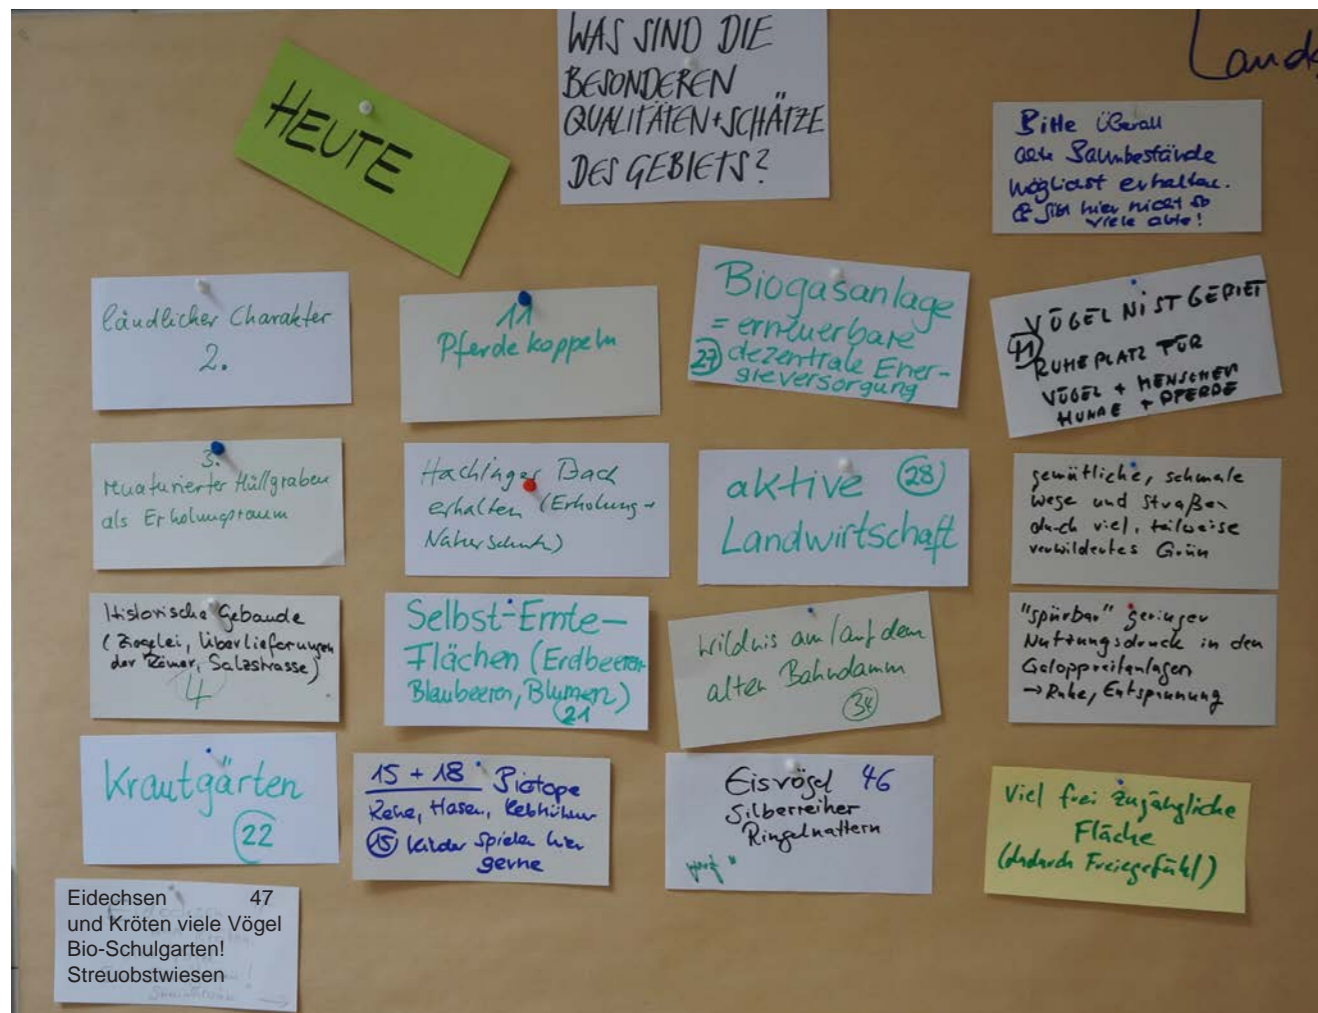 HEUTE
WAS SIND DIE
BESONDEREN
QUALITÄTEN + SCHÄTZE
DES GEBIETS?
Lands
Bitte überall
alte Baumbestände
möglichst erhalten.
Es gibt hier nicht so
viele alte!
ländlicher Charakter
2.
11
Pferdekoppeln
Biogasanlage
= erneuerbare
27 dezentrale Ener-
gieversorgung
VÖGEL NISTGEBIET
41
RUHEPLATZ FÜR
VÖGEL + MENSCHEN
HUNDE + PFERDE
3.
renaturierter Hüllgraben
als Erholungsraum
Hachinger Bach
erhalten (Erholung +
Naturschutz)
aktive 28
Landwirtschaft
gemütliche, schmale
Wege und Straßen
durch viel, teilweise
verwildertes Grün
Historische Gebäude
(Ziegelei, Überlieferungen
der Römer, Salzstrasse)
4
Selbst-Ernte-
Flächen (Erdbeeren
Blaubeeren, Blumen)
21
Wildnis am/auf dem
alten Bahndamm
34
"spürbar" geringer
Nutzungsdruck in den
Galopprreitanlagen
→ Ruhe, Entspannung
Krautgärten
22
15 + 18 Biotope
Rehe, Hasen, Rebhühner
15 Kinder spielen hier
gerne
Eisvögel 46
Silberreiher
Ringelnattern
Viel frei zugängliche
Fläche
(dadurch Freiegefühl)
Eidechsen 47
und Kröten viele Vögel
Bio-Schulgarten!
Streuobstwiesen